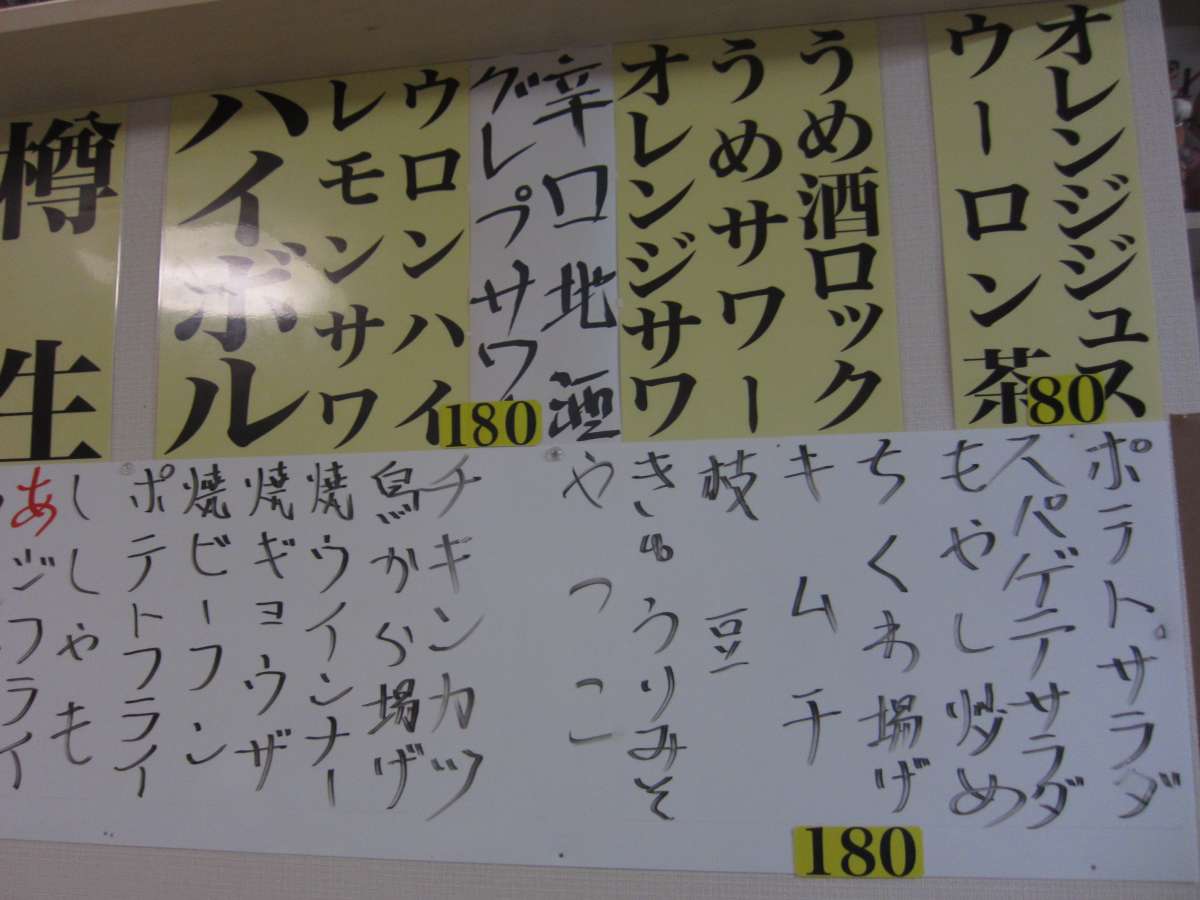 オレンジジュース
ウーロン茶
80
うめ酒ロック
うめサワー
オレンジサワ
辛口地酒
グレプサワ
ウロンハイ
レモンサワ
ハイボル
180
樽生
ポテトサラダ
スパゲテサラダ
もやし炒め
ちくわ場げ
キムチ
枝豆
きゅうりみそ
やっこ
180
チキンカツ
鳥から場げ
焼ウインナー
焼ギョウザ
焼ビーフン
ポテトフライ
ししゃも
あジフライ